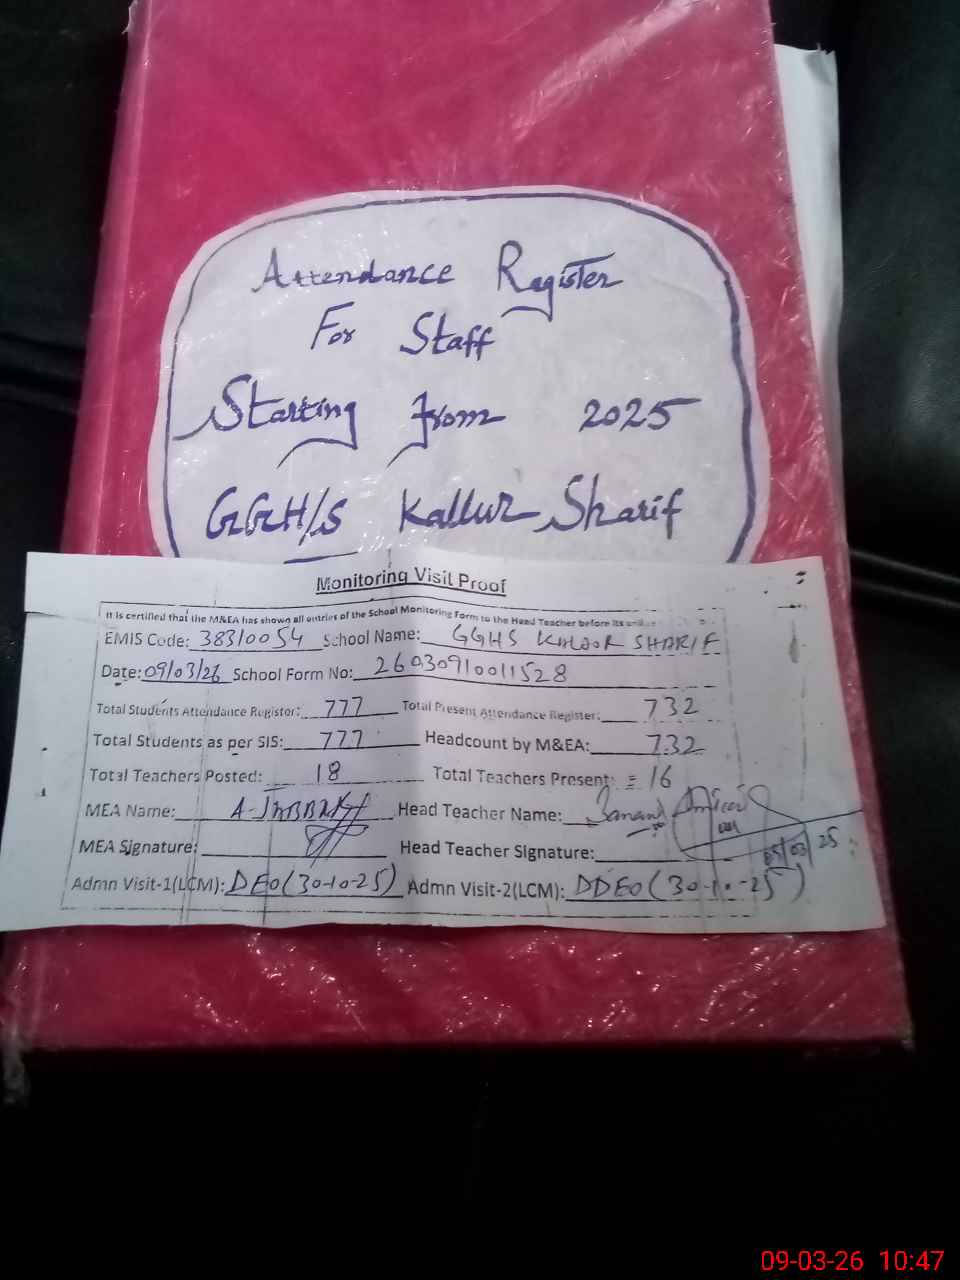 Attendance Register
For Staff
Starting from 2025
GGH/S Kallur Sharif
Monitoring Visit Proof
It is certified that the M&EA has shown all entries of the School Monitoring Form to the Head Teacher before its
EMIS Code: 38310054 School Name: GGHS KALOOR SHARIF
Date: 09/03/26 School Form No: 26030910011528
Total Students Attendance Register: 777 Total Present Attendance Register: 732
Total Students as per SIS: 777 Headcount by M&EA: 732
Total Teachers Posted: 18 Total Teachers Present: = 16
MEA Name: A-JABBAR Head Teacher Name:
MEA Signature: Head Teacher Signature:
Admn Visit-1(LCM): DEO (30-10-25) Admn Visit-2(LCM): DDEO (30-10-25)
09-03-26 10:47